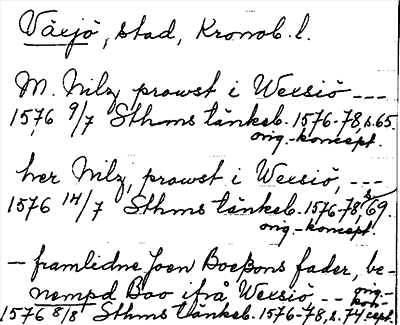 Växjö, stad, Kronob. l.
M. Nilz prowst i Wexsiö ---
1576 9/7 Sthms tänkeb. 1576-78, s. 65.
orig.-koncept.
her Nilz, prowst i Wexsiö, ---
1576 14/7 Sthms tänkeb. 1576-78, s. 69.
orig.-koncept.
— framlidne Joen Boeßons fader, be-
nempd Boo ifrå Wexsiö --
1576 8/8 Sthms tänkeb. 1576-78, s. 74 orig.-kon-cept.